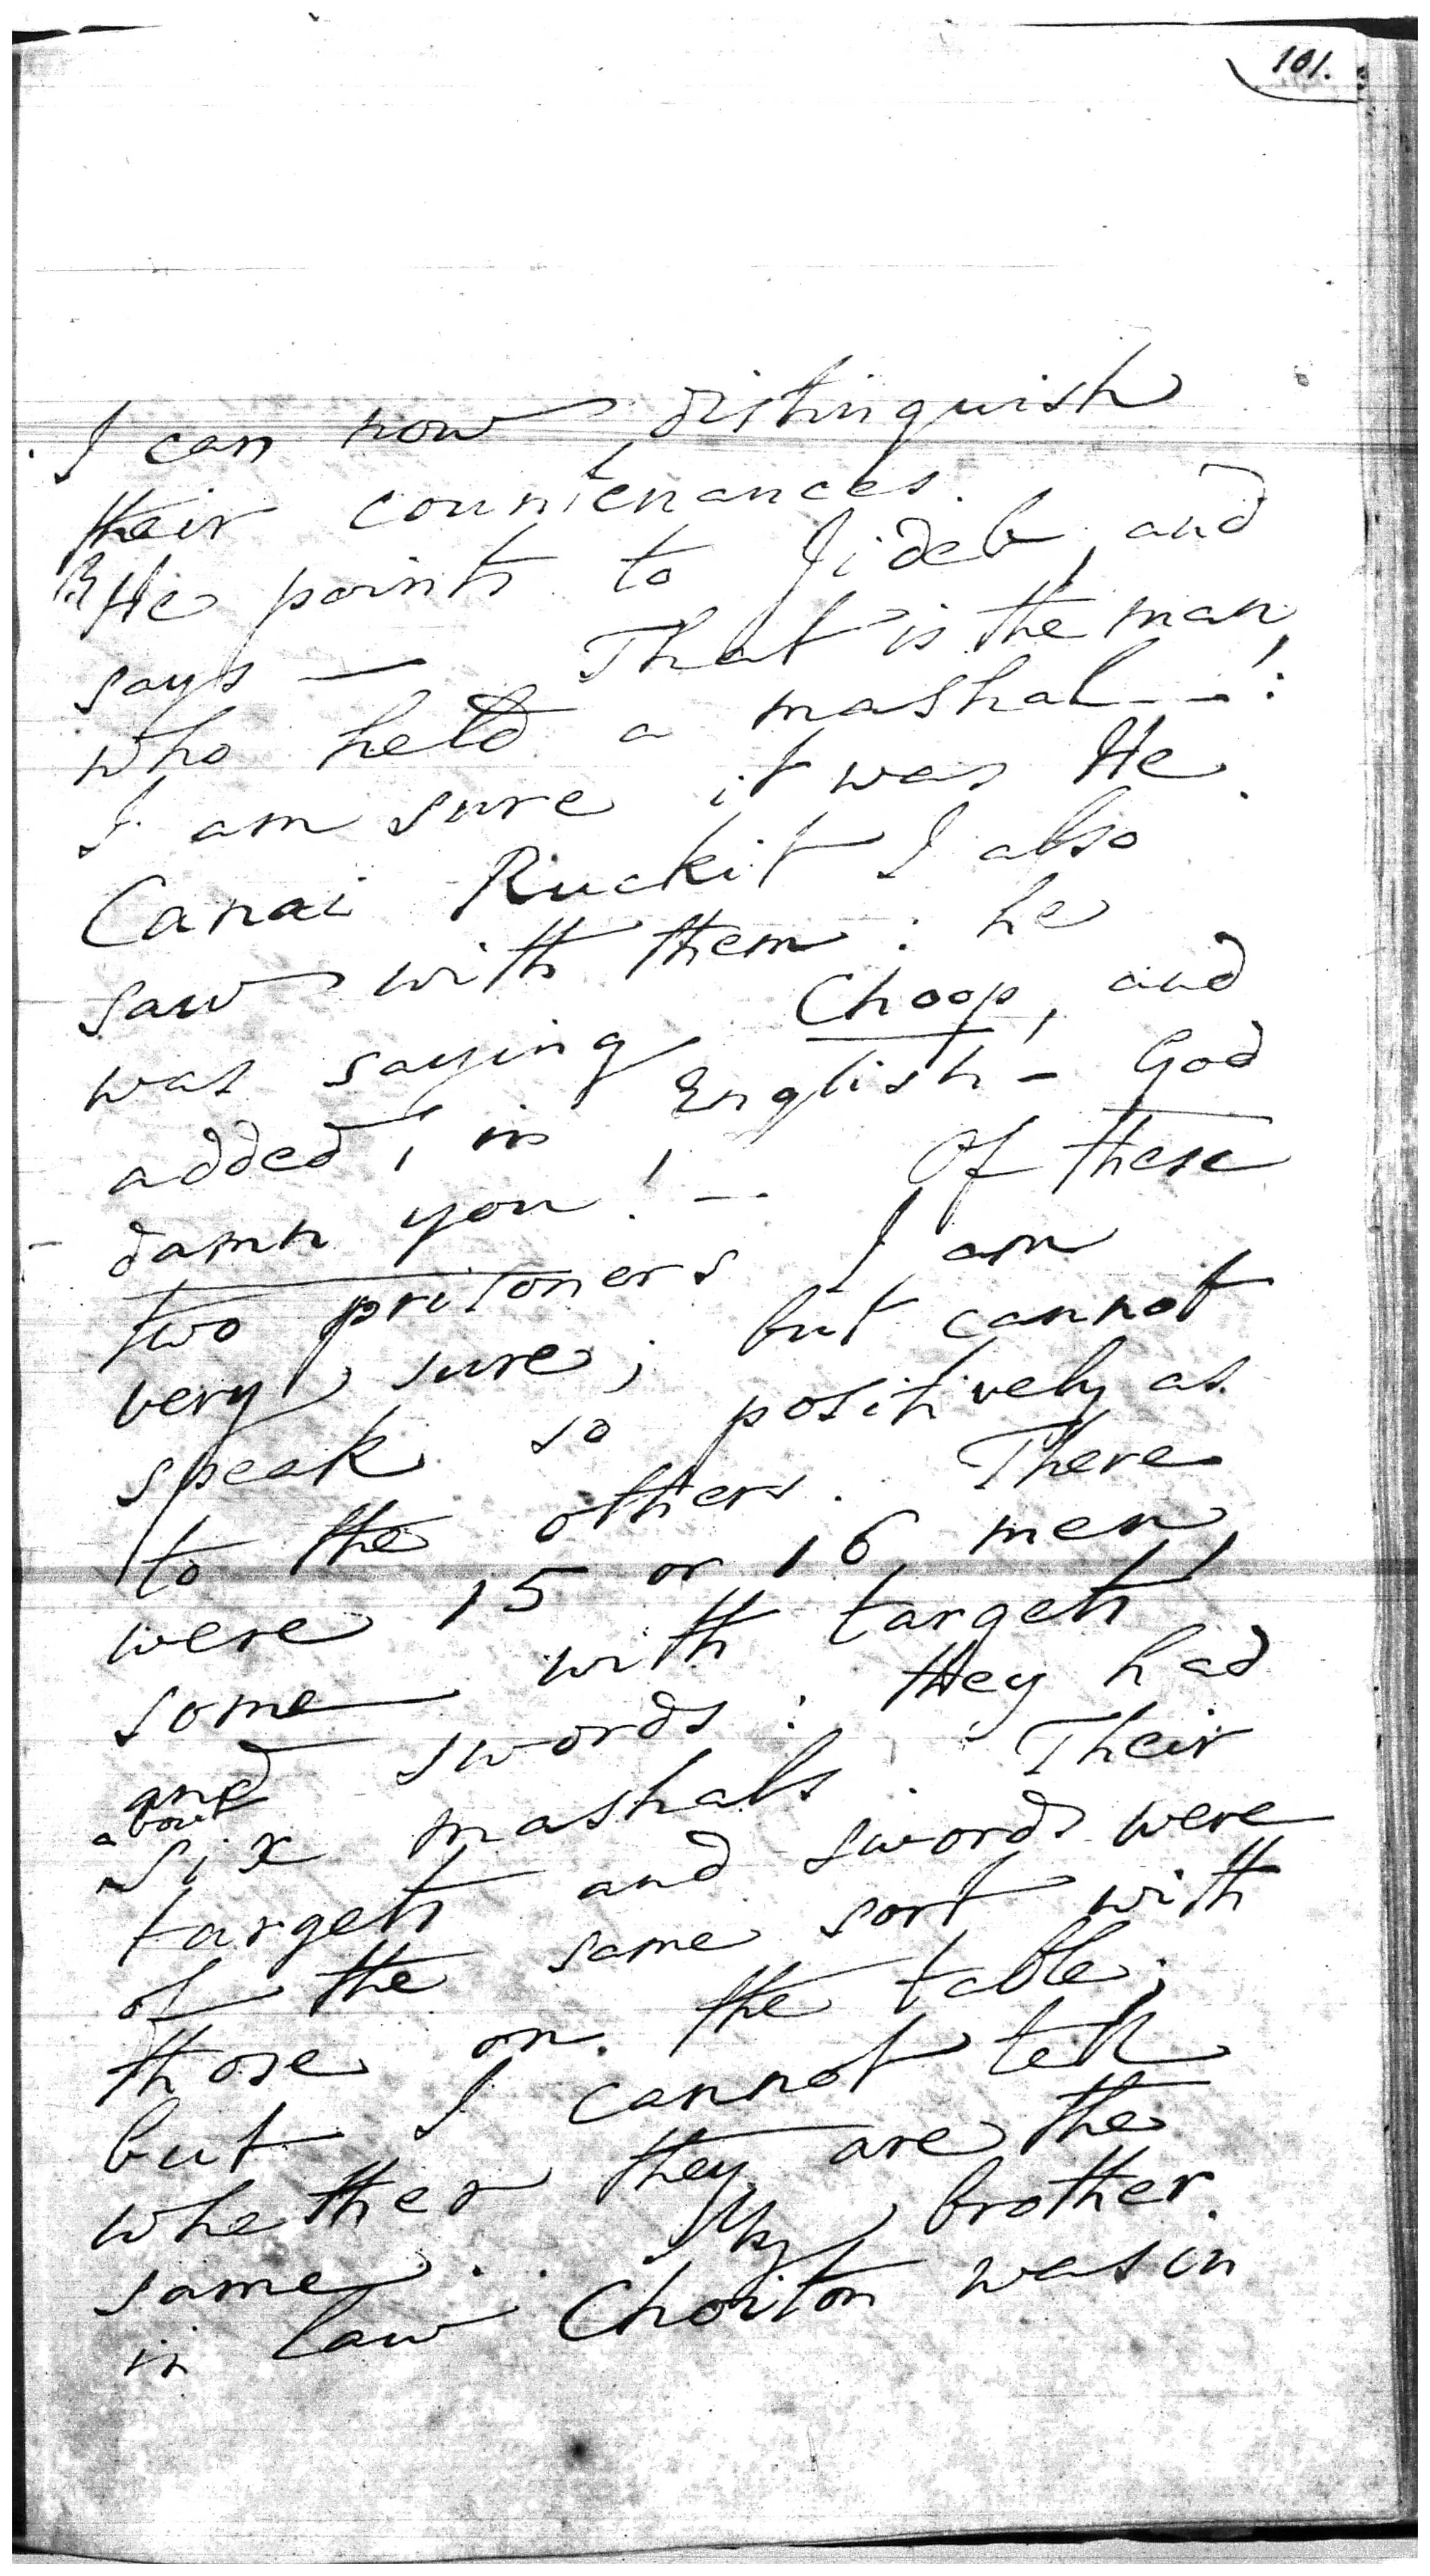 101.
I can now distinguish
their countenances.
He points to Jideb, and
says — That is the man,
who held a mashal--!:
I am sure it was He.
Canai Ruckit I also
saw with them: he
was saying Choop, and
added, in English - God
damn you! -- Of these
two prisoners I am
very sure; but cannot
speak so positively as
to the others. There
were 15 or 16 men,
some with targets,
and swords: they had
about
six mashals. Their
targets and swords were
of the same sort with
those on the table;
but I cannot tell
whether they are the
same.. My brother
in law Choiton was in